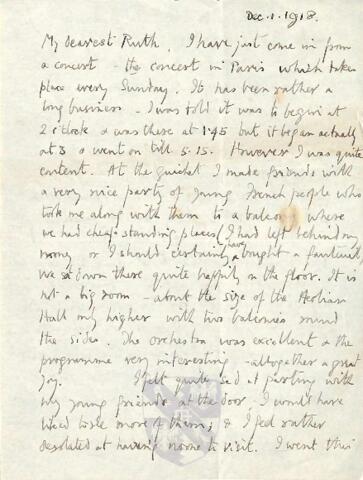 Dec. 1. 1918.
My dearest Ruth, I have just come in from
a concert - the concert in Paris which takes
place every Sunday. It has been rather a
long business - I was told it was to begin at
2 o'clock & was there at 1.45 but it began actually
at 3 & went on till 5.15. However I was quite
content. At the guichet I made friends with
a very nice party of young French people who
took me along with them to a balcony where
we had cheap standing places (I had left behind my
money or I should certainly have bought a fauteuil)
we sat down there quite happily on the floor. It is
not a big room - about the size of the Aeolian
Hall only higher with two balconies round
the sides. The orchestra was excellent & the
programme very interesting - altogether a great
joy. I felt quite sad at parting with
my young friends at the door - I would have
liked to see more of them; & I feel rather
desolated at having no one to visit. I went this